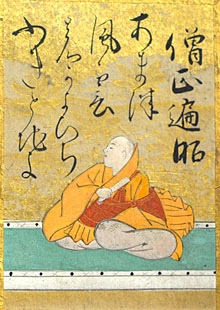 僧正遍昭
あま津
風雲
のかよひち
ふきと地よ